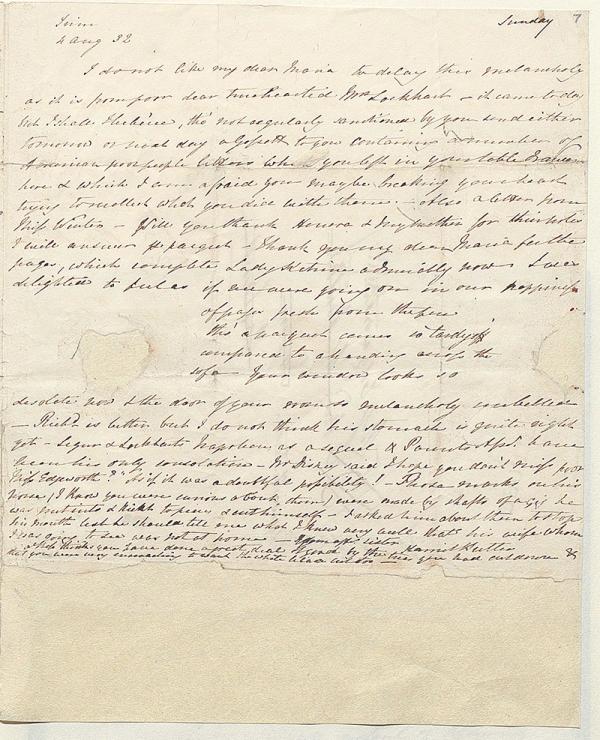 Trim
4 Aug 32
Sunday 7
I do not like my dear Maria to delay this melancholy
as it is from poor dear truehearted Mrs Lockhart – it came to day
Yet I shall I believe, tho' not regularly sanctioned by you send either
tomorrow or next day to you containing a number of
American poor people letters which you left in your table
here & which I am afraid you may be breaking your head
trying to recollect what you did with them. – Also a letter from
Miss Winter – Will you thank Honora & my mother for their notes
I will answer – Thank you my dear Maria for the
pages, which complete Lady admirably now I was
delighted to feel as if we were going on in our
of pages fresh from the pen
tho' a parquet comes so tardy
compared to a handing across the
sofa Your window looks so
desolate now & the door of your room so melancholy
– Richd is better but I do not think his stomach is quite right
yet – Segur & Lockharts Napoleon as a sequel & have
been his only consolation – Mr said I hope you don't miss poor
Miss Edgeworth?" As if it was a doubtful possibility! – marks on his
, (I know you were curious about them) were made by shafts of a gig he
was put into & kickd to & himself – I asked him about them to stop
his mouth lest he should tell me what I knew very well that his wife whom
I was going to see was not at home – Your affte sister
Harriet Butler
thinks you have done a great deal of good by the
that you were very to the white you had cut down &c